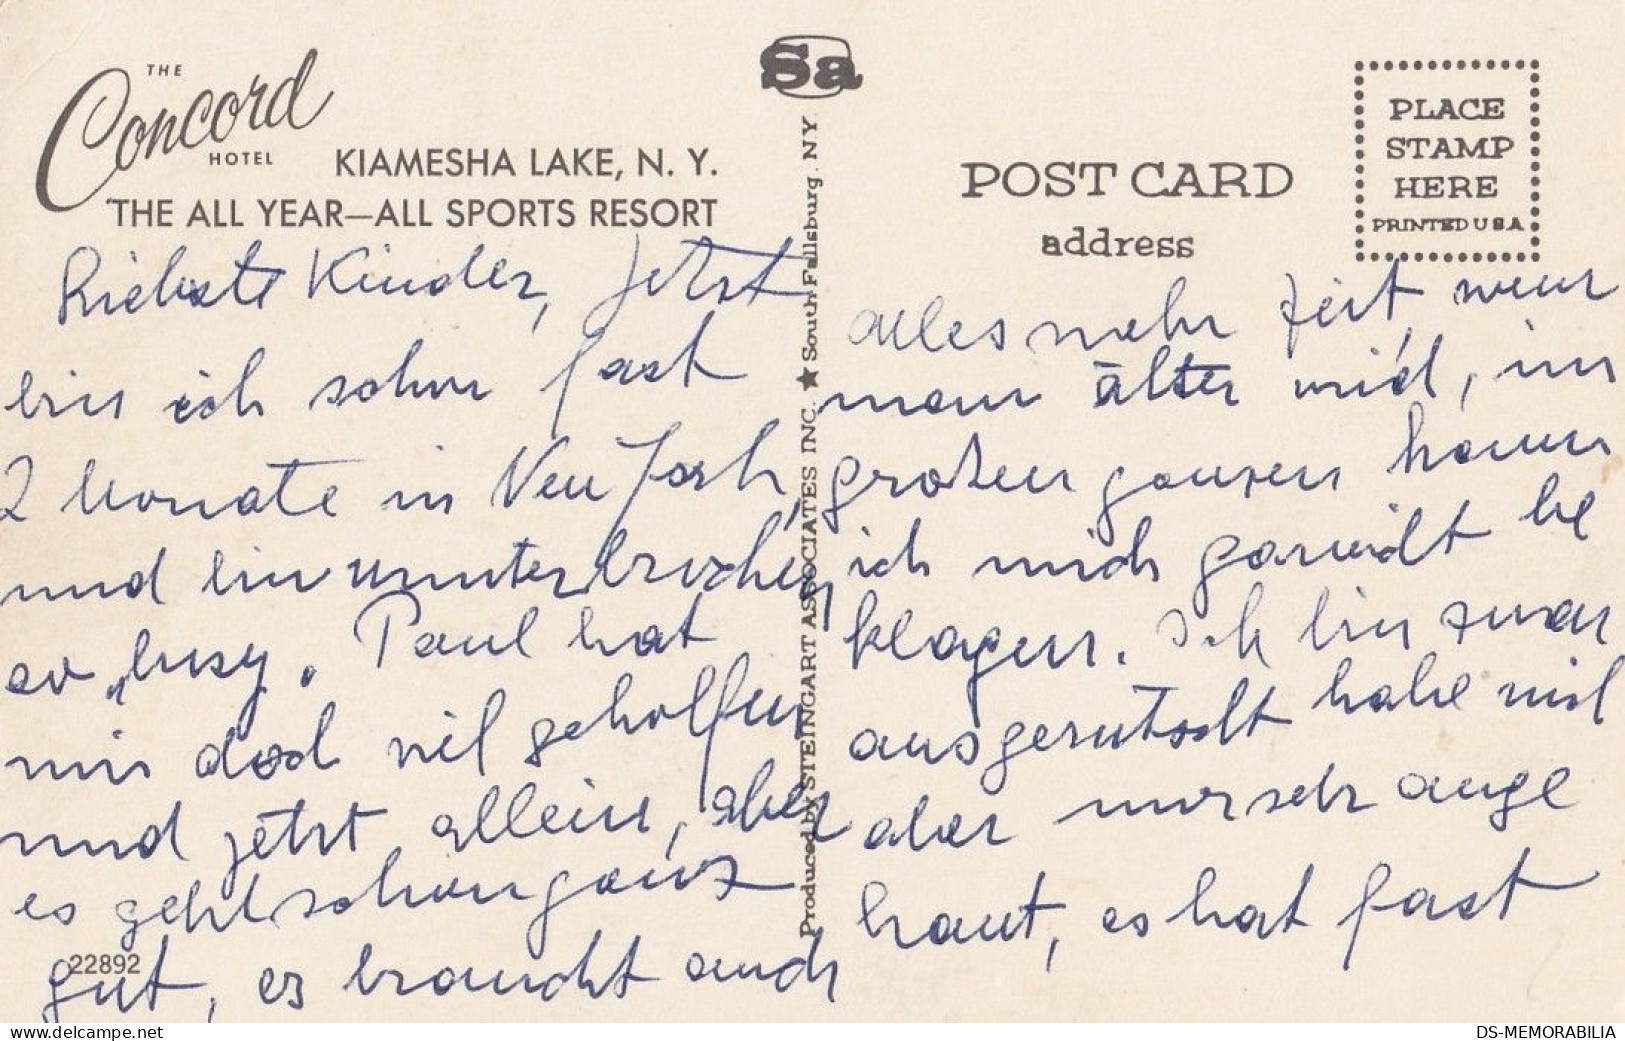 THE
Concord
HOTEL
KIAMESHA LAKE, N. Y.
THE ALL YEAR—ALL SPORTS RESORT
Sa
Produced by STEINGART ASSOCIATES INC. ★ South Fallsburg. N Y
POST CARD
address
PLACE
STAMP
HERE
PRINTED U S A
Kinder, Jetzt
bin ich schon fast
2 Monate in New York,
und bin ununterbrochen
so „busy. Paul hat
mir doch viel geholfen
und jetzt allein, aber
es geht schon ganz
gut, es braucht auch
alles mehr Zeit, wenn
man älter wird, im
großen ganzen kann
ich mich garnicht be
klagen. Ich bin zwar
ausgerutscht habe mich
aber nur sehr ange
haut, es hat fast
22892
DS-MEMORABILIA
delcampe.net